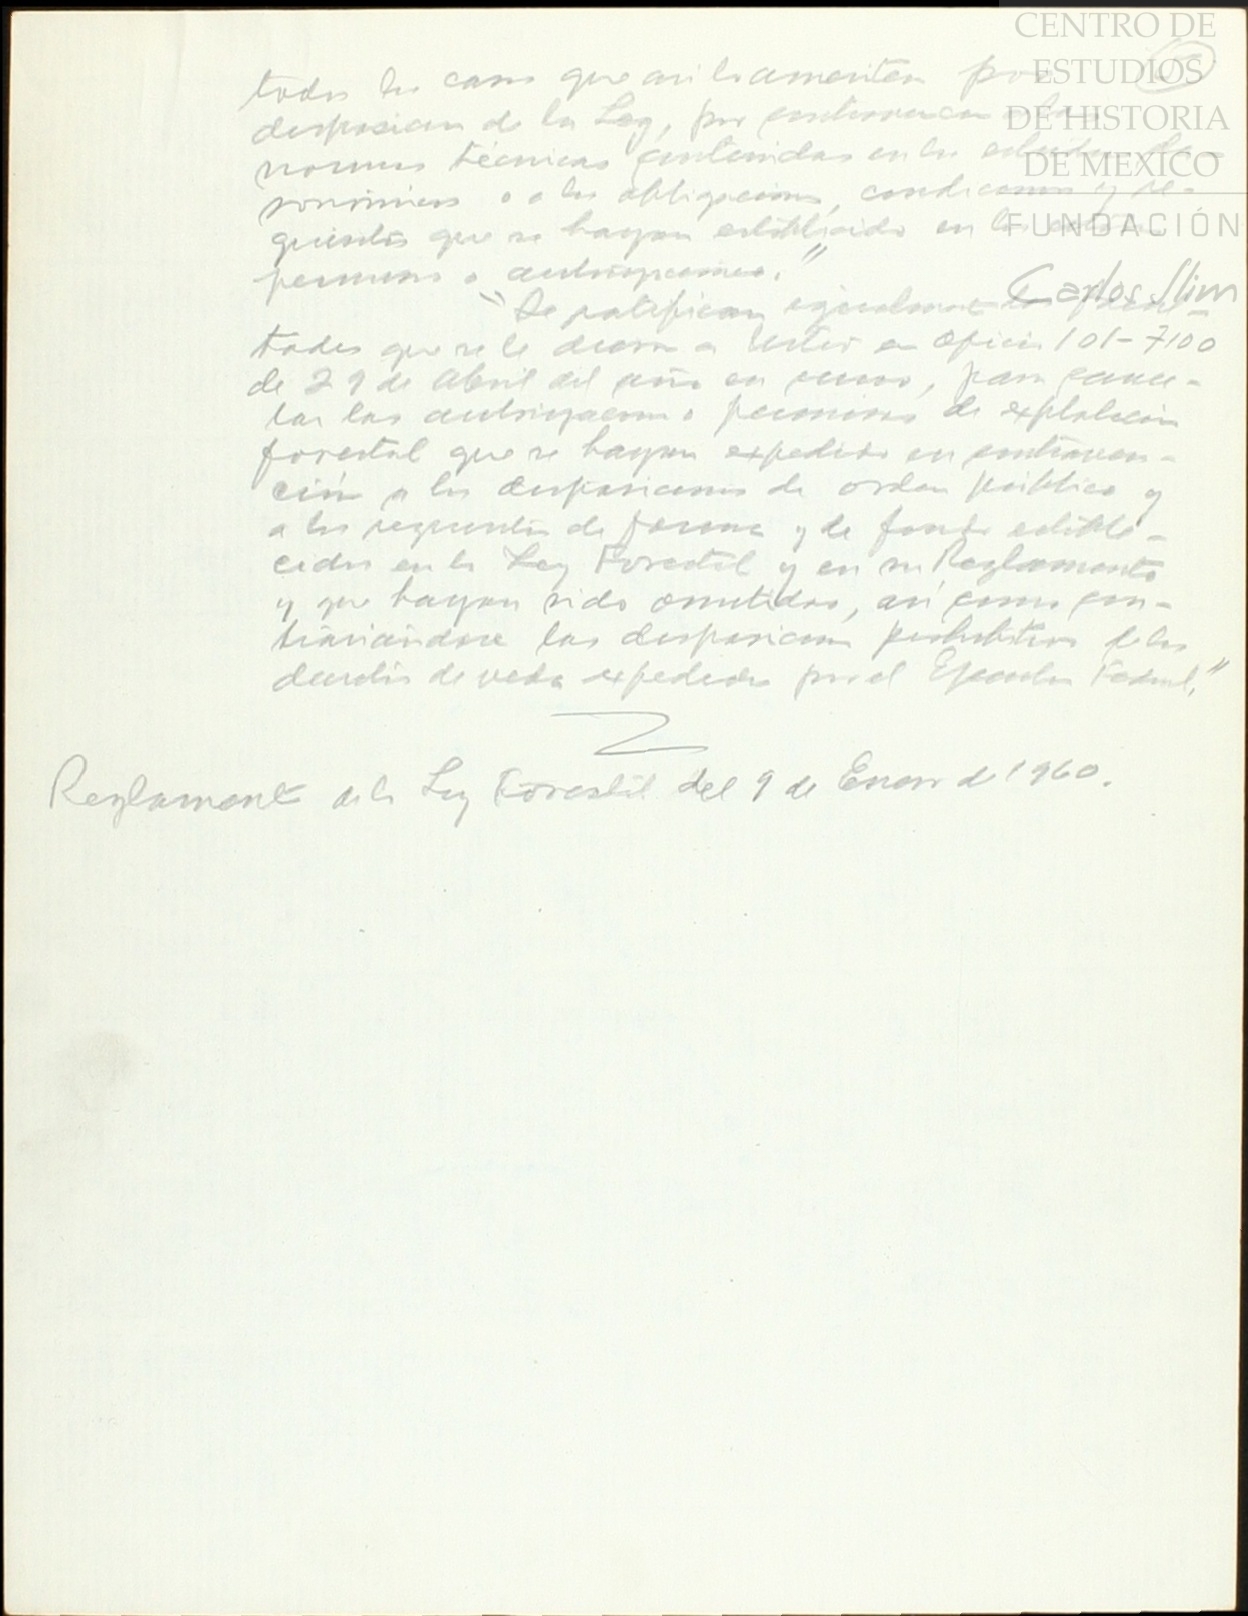 CENTRO DE
ESTUDIOS
DE HISTORIA
DE MEXICO
FUNDACIÓN
Carlos Slim
todos los casos que asi lo ameriten por
disposicion de la Ley, por contravencion a las
normas técnicas contenidas en los estudios da-
sonómicos o a las obligaciones, condiciones y re-
quisitos que se hayan establecido en los
permisos o autorizaciones."
"Se ratifican igualmente las facul-
tades que se le dieron a Usted en Oficio 101-7100
de 29 de Abril del año en curso, para cance-
lar las autorizaciones o permisos de explotación
forestal que se hayan expedido en contraven-
ción a las disposiciones de orden público y
a los requisitos de forma y de fondo estable-
cidos en la Ley Forestal y en su Reglamento
y que hayan sido omitidos, asi como con-
trariandose las disposiciones prohibitivas de los
decretos de veda expedidos por el Ejecutivo Federal."
Reglamento de la Ley Forestal del 9 de Enero de 1960.